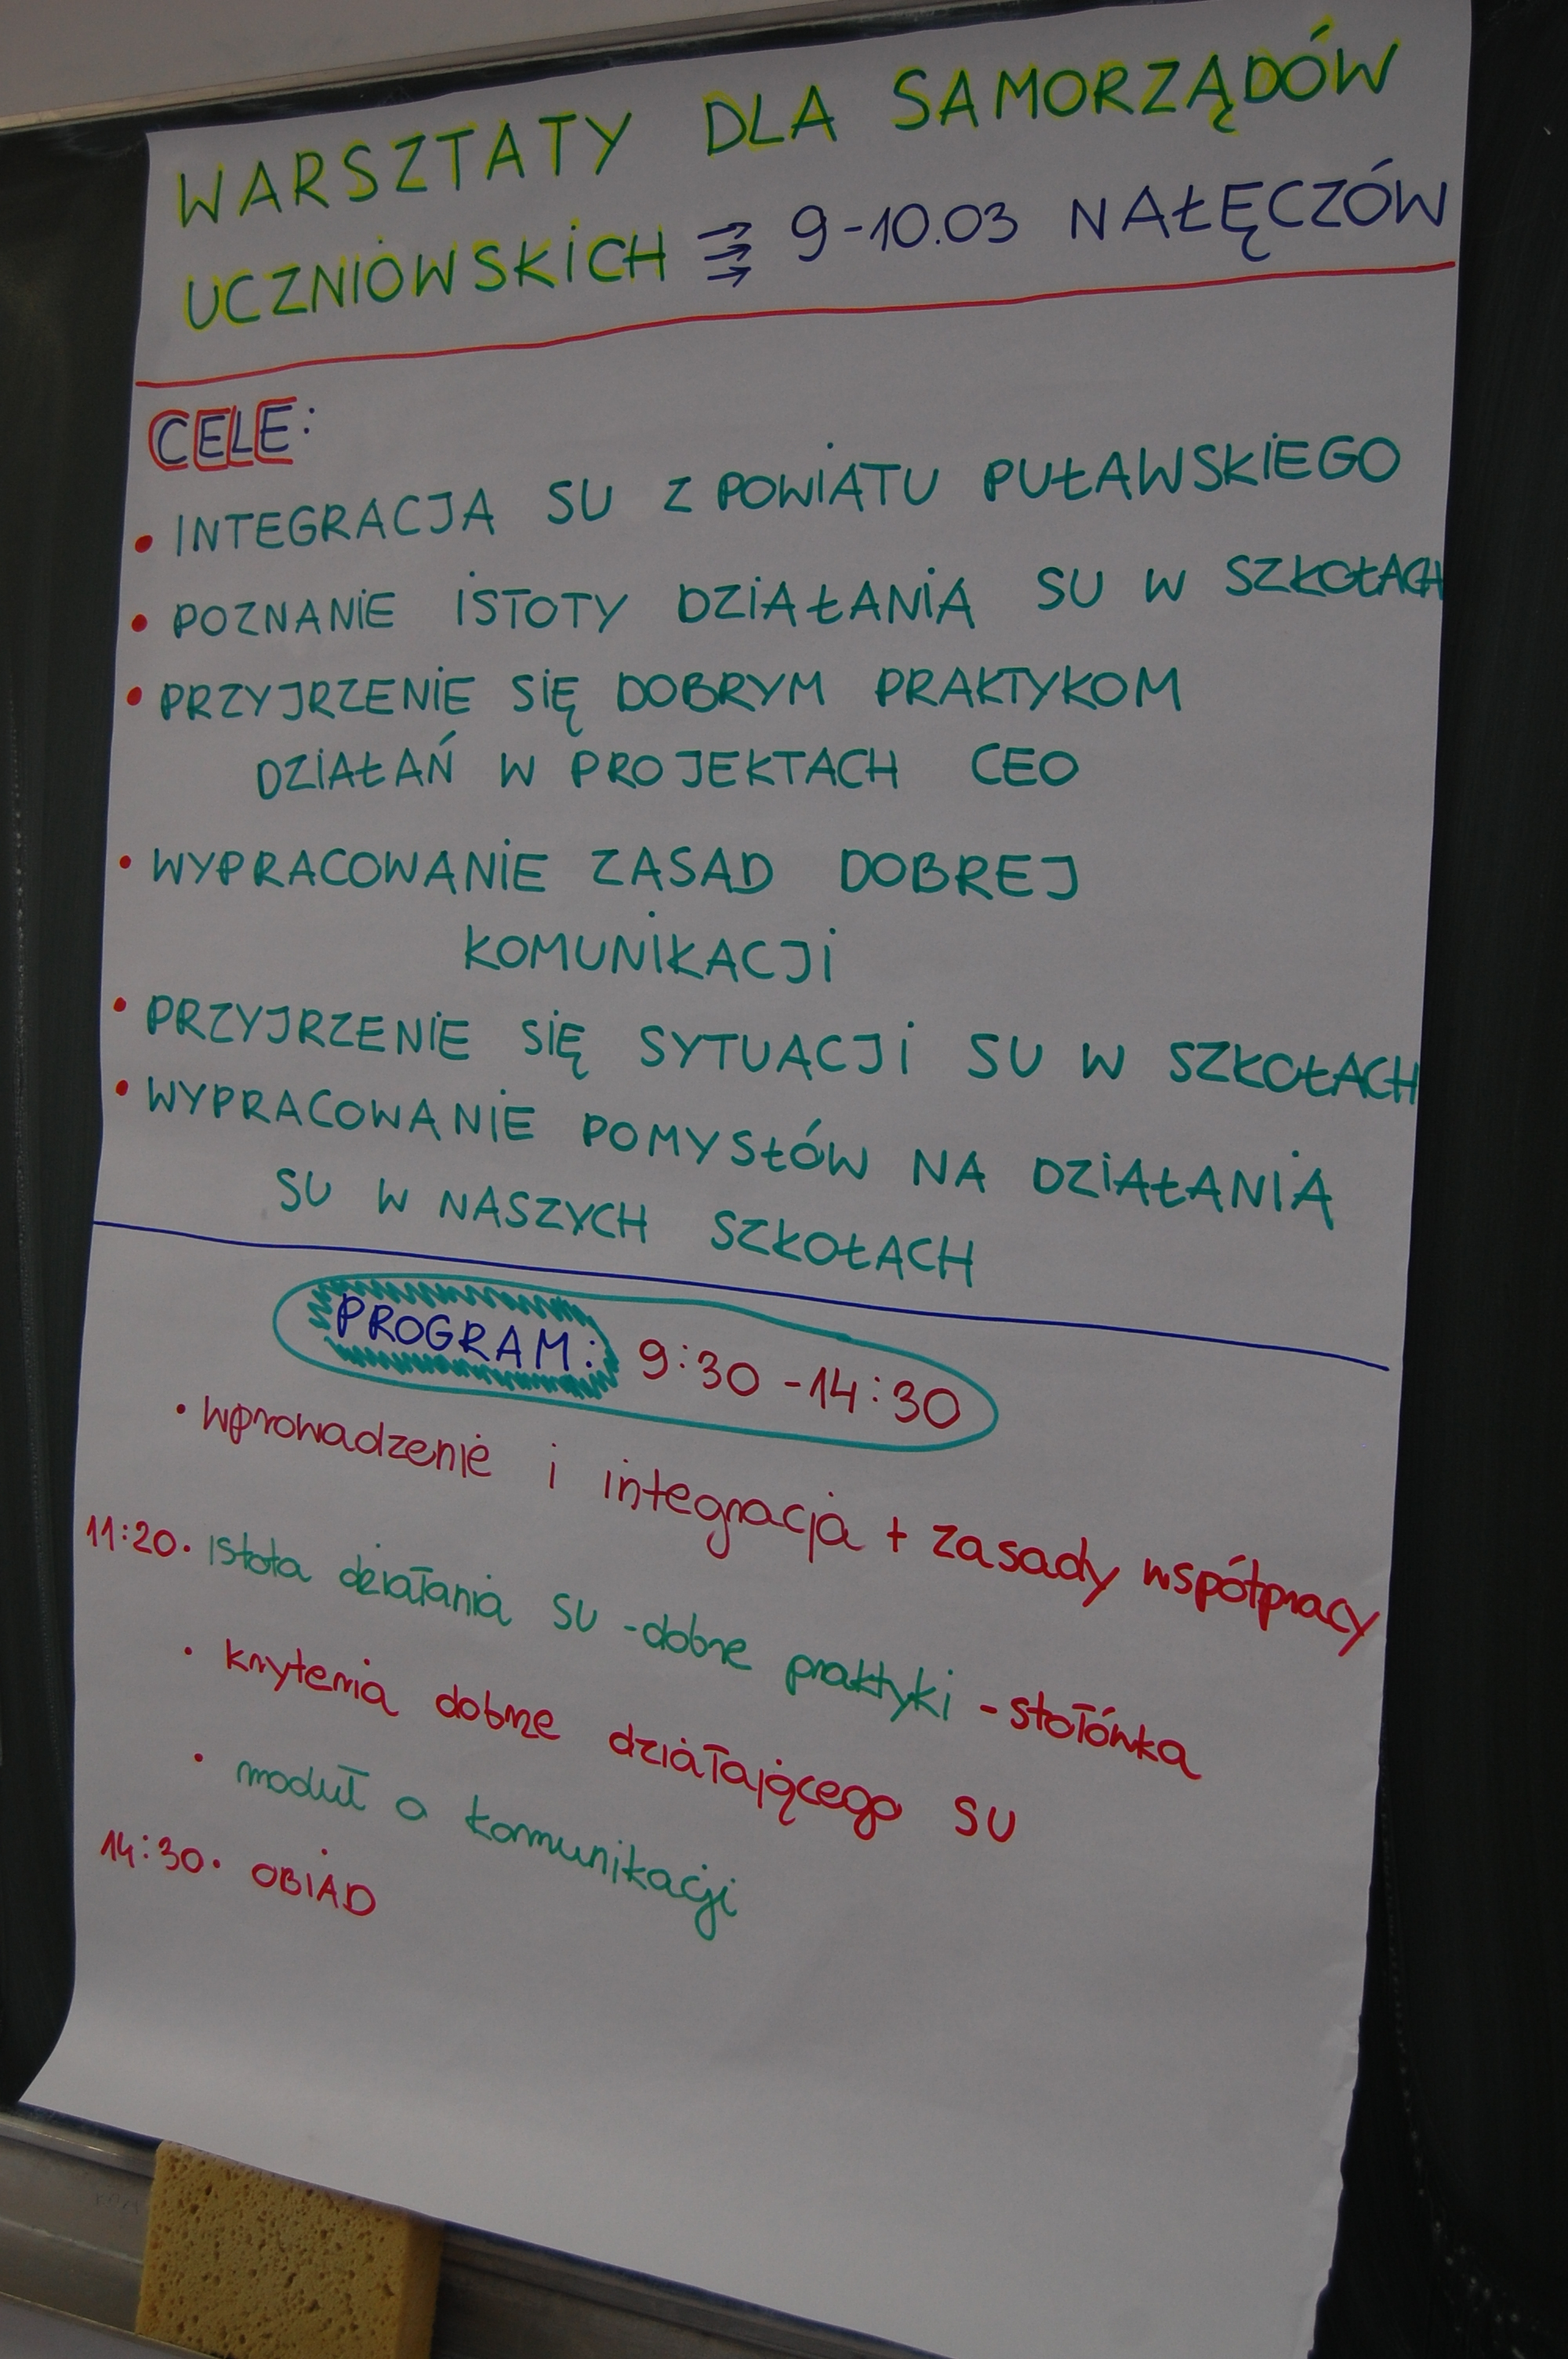 WARSZTATY DLA SAMORZĄDÓW
UCZNIOWSKICH 9-10.03 NAŁĘCZÓW
CELE:
• INTEGRACJA SU Z POWIATU PUŁAWSKIEGO
• POZNANIE ISTOTY DZIAŁANIA SU W SZKOŁACH
• PRZYJRZENIE SIĘ DOBRYM PRAKTYKOM
DZIAŁAŃ W PROJEKTACH CEO
• WYPRACOWANIE ZASAD DOBREJ
KOMUNIKACJI
• PRZYJRZENIE SIĘ SYTUACJI SU W SZKOŁACH
• WYPRACOWANIE POMYSŁÓW NA DZIAŁANIA
SU W NASZYCH SZKOŁACH
PROGRAM: 9:30 - 14:30
• wprowadzenie i integracja + zasady współpracy
11:20 • istota działania SU - dobre praktyki - stołówka
• kryteria dobrze działającego SU
• moduł o komunikacji
14:30 • OBIAD